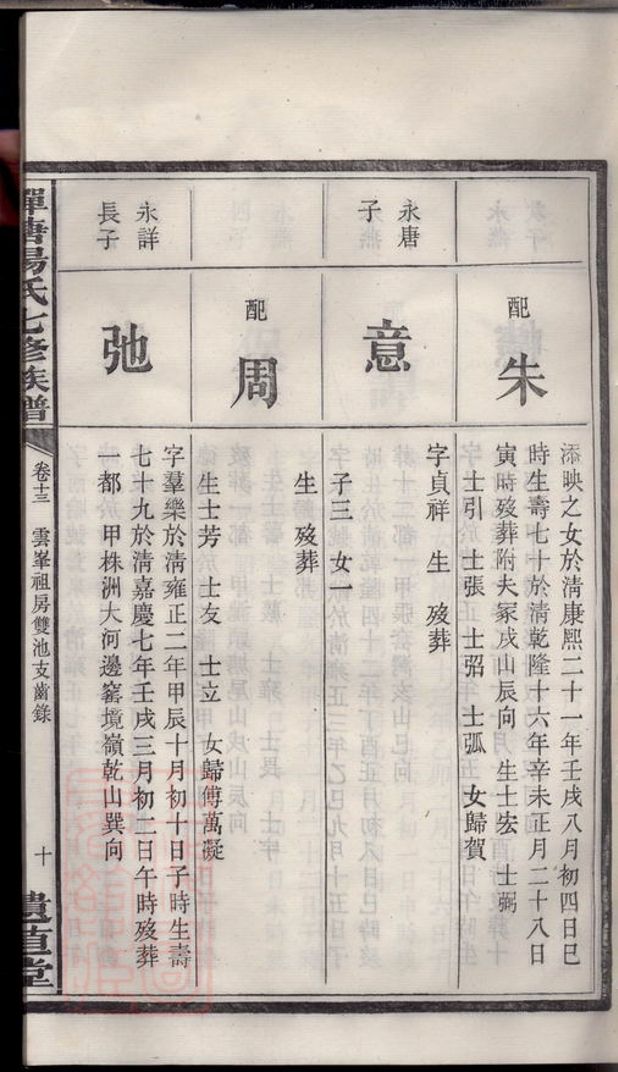 配
朱
添映之女於清康熙二十一年壬戌八月初四日巳
時生壽七十於清乾隆十六年辛未正月二十八日
寅時歿葬附夫冢戌山辰向 生士宏 士弼
士引 士張 士弨 士弧 女歸賀
永唐
子
意
字貞祥 生 歿葬
子三 女一
配
周
生 歿葬
生士芳 士友 士立 女歸傅萬凝
永詳
長子
弛
字羣樂於清雍正二年甲辰十月初十日子時生壽
七十九於清嘉慶七年壬戌三月初二日午時歿葬
一都 甲株洲大河邊窰境嶺乾山巽向
湯氏七修族譜
卷十三 雲峯祖房雙池支齒錄
十
遺直堂